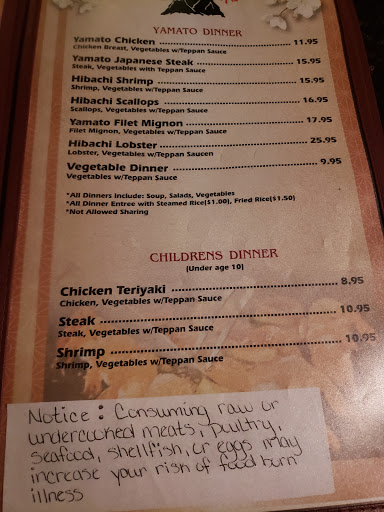 YAMATO DINNER
Yamato Chicken 11.95
Chicken Breast, Vegetables w/Teppan Sauce
Yamato Japanese Steak 15.95
Steak, Vegetables with Teppan Sauce
Hibachi Shrimp 15.95
Shrimp, Vegetables w/Teppan Sauce
Hibachi Scallops 16.95
Scallops, Vegetables w/Teppan Sauce
Yamato Filet Mignon 17.95
Filet Mignon, Vegetables w/Teppan Sauce
Hibachi Lobster 25.95
Lobster, Vegetables w/Teppan Saucen
Vegetable Dinner 9.95
Vegetables w/Teppan Sauce
*All Dinners Include: Soup, Salads, Vegetables
*All Dinner Entree with Steamed Rice($1.00), Fried Rice($1.50)
*Not Allowed Sharing
CHILDRENS DINNER
(Under age 10)
Chicken Teriyaki 8.95
Chicken, Vegetables w/Teppan Sauce
Steak 10.95
Steak, Vegetables w/Teppan Sauce
Shrimp 10.95
Shrimp, Vegetables w/Teppan Sauce
Notice: Consuming raw or
undercooked meats, poultry,
seafood, shellfish, or eggs may
increase your risk of food burn
illness